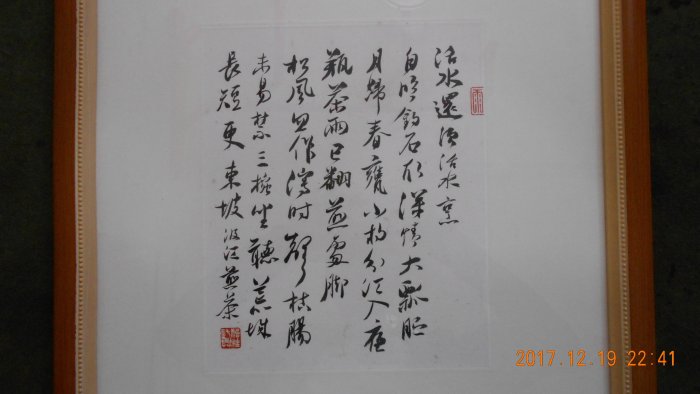 活水還須活水烹
自臨釣石取深情大瓢貯
月歸春甕小杓分江入夜
瓶茶雨已翻煎處腳
松風忽作瀉時聲枯腸
未易禁三椀坐聽荒城
長短更東坡汲江煎茶
2017.12.19 22:41